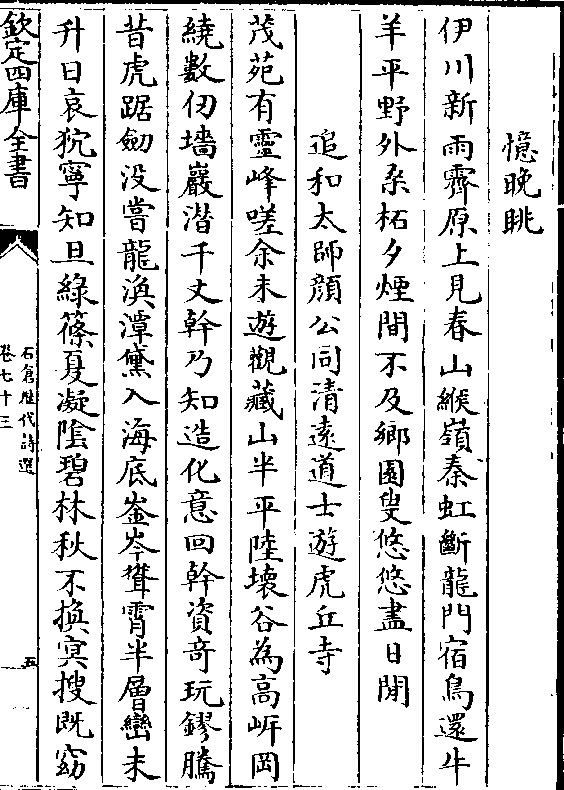 憶晚眺
伊川新雨霽原上見春山緱嶺秦虹斷龍門宿鳥還牛
羊平野外桒柘夕煙間不及鄉園叟悠悠盡日閒
追和太師顔公同清逺道士遊虎丘寺
茂苑有靈峰嗟余未遊觀藏山半平陸壊谷為高岸岡
繞數仞墻巖潜千丈幹乃知造化意回斡資竒玩鏐騰
昔虎踞劒没嘗龍渙潭黛入海底崟岑聳霄半層巒未
升日哀狖寧知旦緑篠夏凝隂碧林秋不換冥搜既窈
欽定四庫全書
石倉歴代詩選
卷七十三
五